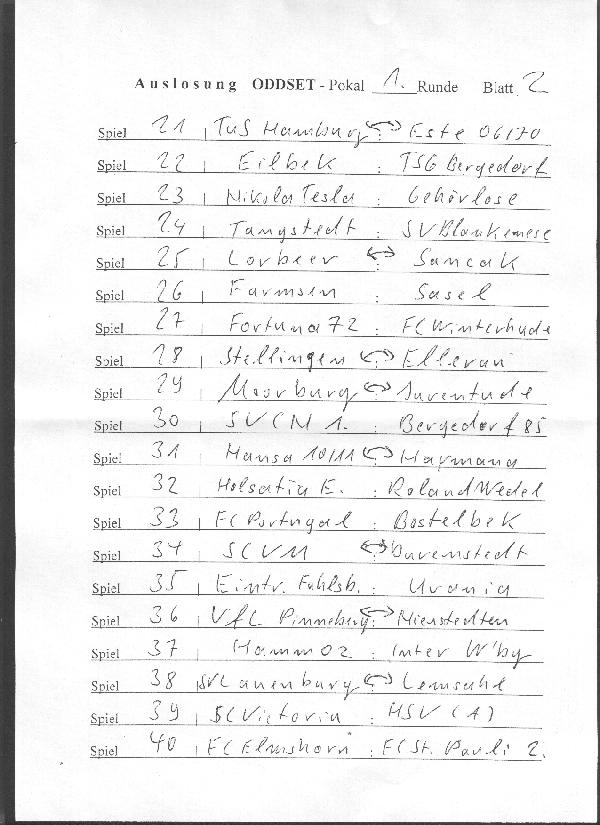 Auslosung ODDSET - Pokal 1. Runde Blatt 2
Spiel 21 | TuS Hamburg ↔ : Este 06/70
Spiel 22 | Eilbek : TSG Bergedorf
Spiel 23 | Nikola Tesla : Gehörlose
Spiel 24 | Tangstedt : SV Blankenese
Spiel 25 | Lorbeer ↔ : Sancak
Spiel 26 | Farmsen : Sasel
Spiel 27 | Fortuna 72 : FC Winterhude
Spiel 28 | Stellingen ↔ : Ellerau
Spiel 29 | Moorburg ↔ : Juventude
Spiel 30 | SVCN 1. : Bergedorf 85
Spiel 31 | Hansa 10/11 ↔ : Harmonia
Spiel 32 | Holsatia E. : Roland Wedel
Spiel 33 | FC Portugal : Bostelbek
Spiel 34 | SCVM ↔ : Duvenstedt
Spiel 35 | Eintr. Fuhlsb. : Urania
Spiel 36 | VfL Pinneberg ↔ : Nienstedten
Spiel 37 | Hamm 02 : Inter W'by
Spiel 38 | SV Lauenburg ↔ : Lemsahl
Spiel 39 | SC Victoria : HSV (A)
Spiel 40 | FC Elmshorn : FC St. Pauli 2.